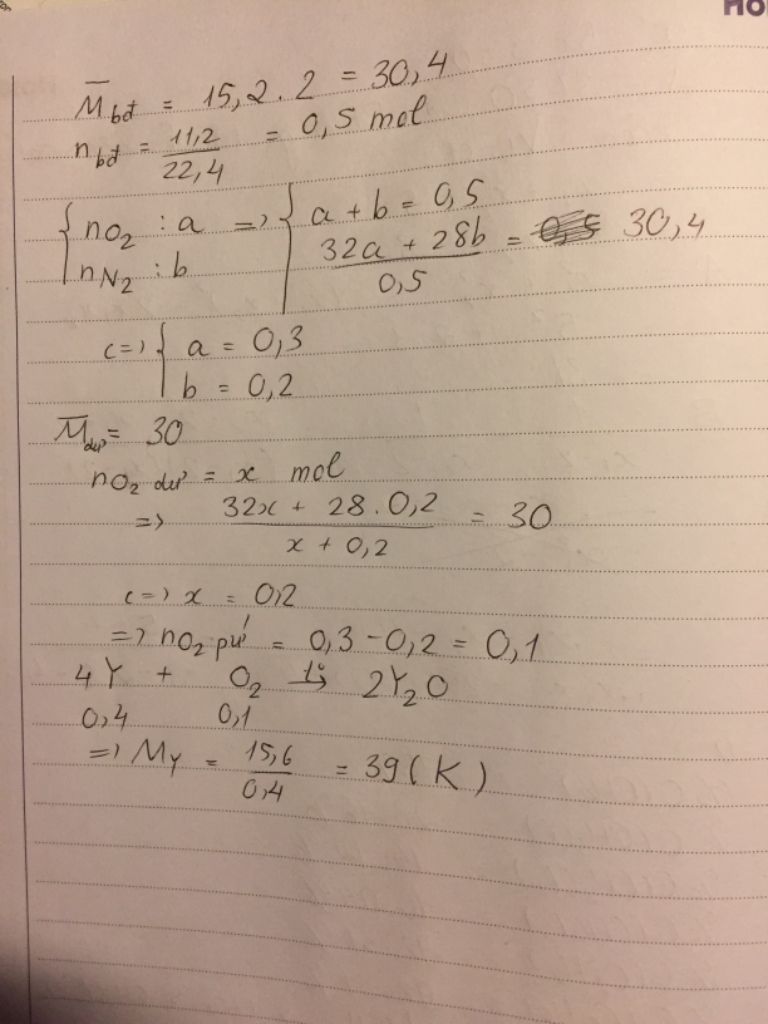 HO
M̅bđ = 15,2 . 2 = 30,4
nbđ = 11,2/22,4 = 0,5 mol
{ nO₂ : a => { a + b = 0,5
nN₂ : b (32a + 28b)/0,5 = 30,4
<=> { a = 0,3
b = 0,2
M̅dư = 30
nO₂ dư = x mol
=> (32x + 28 . 0,2)/(x + 0,2) = 30
<=> x = 0,2
=> nO₂ pứ = 0,3 - 0,2 = 0,1
4Y + O₂ t°→ 2Y₂O
0,4 0,1
=> MY = 15,6/0,4 = 39 (K)